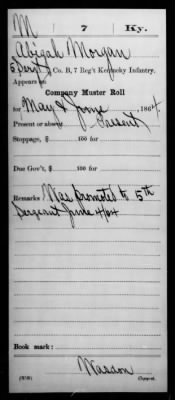 M 7 Ky.
Abijah Morgan
5 Sergt, Co. B, 7 Reg't Kentucky Infantry.
Company Muster Roll
for May & June, 1864
Present or absent Present
Stoppage, $ 100 for
Due Gov't, $ 100 for
Remarks Was promoted to 5th
Sergeant June 4/64
Book mark:
Wasson
(858) Copyist.